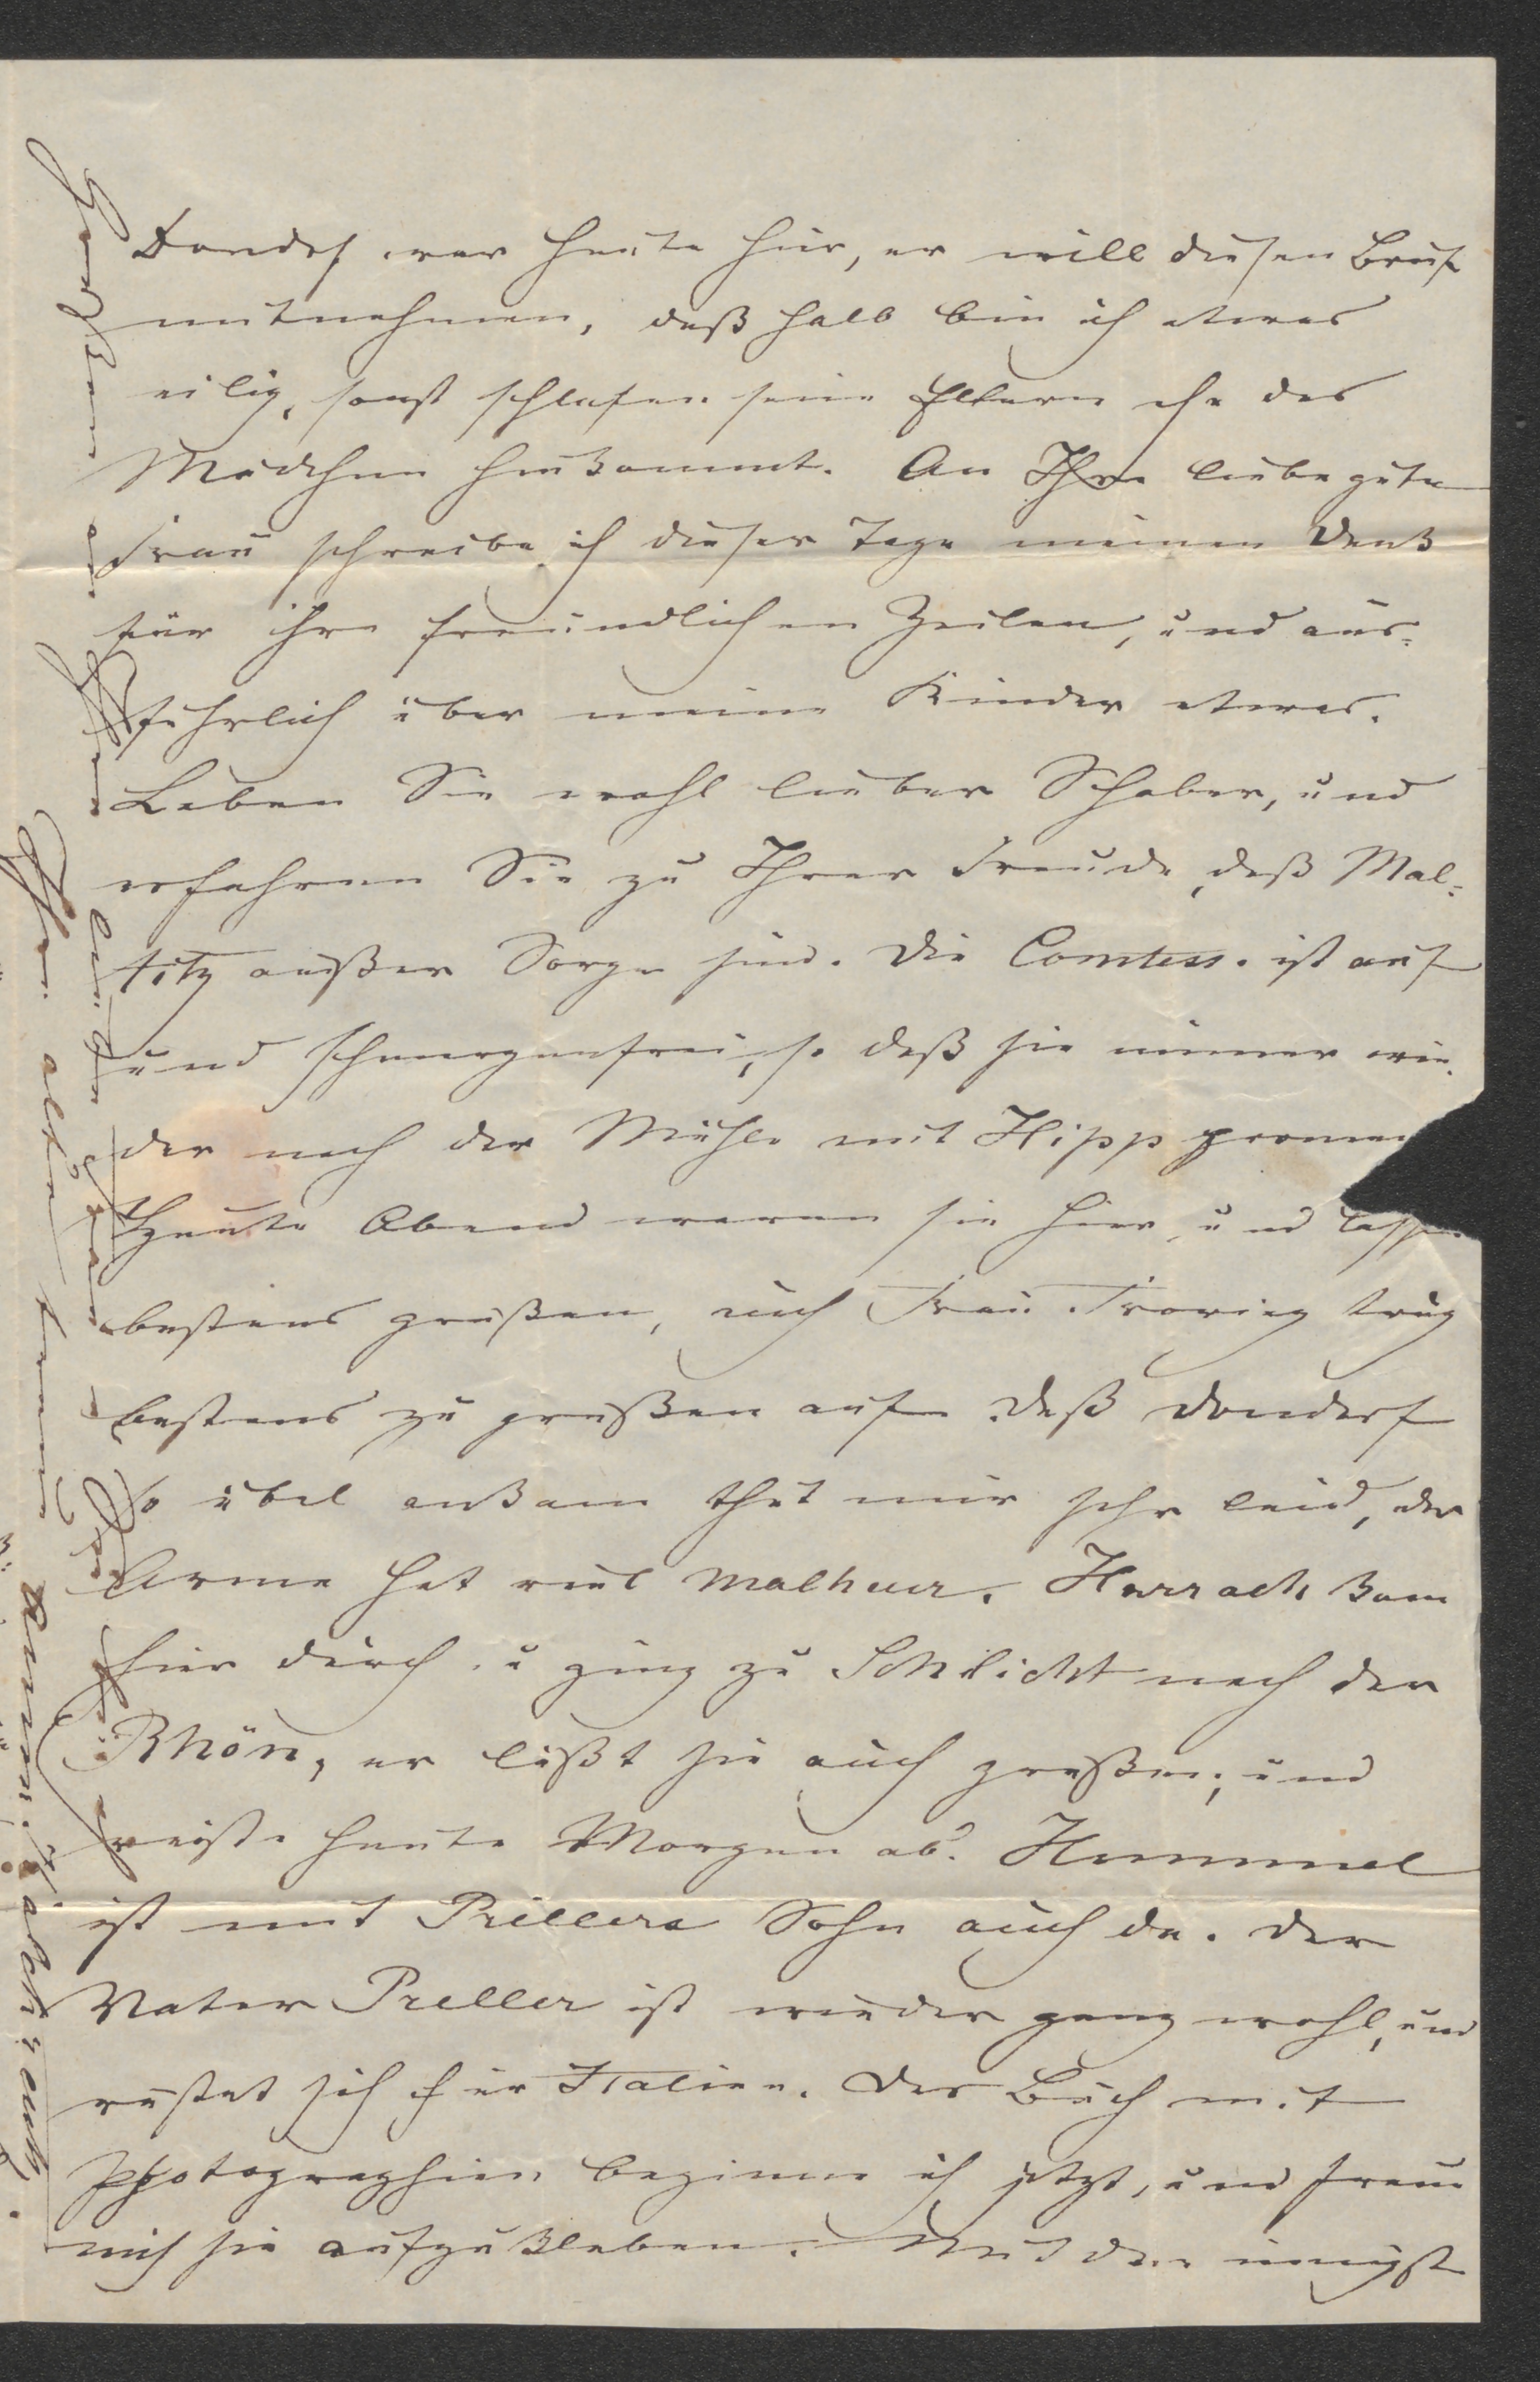 Dondorf war heute hier, er will diesen Brief
mitnehmen, deßhalb bin ich etwas
eilig, sonst schlafen seine Eltern ehe das
Mädchen hinkommt. An Ihre liebe gute
Frau schreibe ich dieser Tage meinen Dank
für ihre freundlichen Zeilen, und aus=
führlich über meine Kinder etwas.
Leben Sie wohl lieber Schober, und
erfahren Sie zu Ihrer Freude, daß Mal=
titz außer Sorge sind. Die Comtess. ist auf
und schmerzenfrei, so daß sie immer wie=
der nach der Mühle mit Hipp promen
Heute Abend waren sie hier, und lassen
bestens grüßen, auch Frau Froriep trug
bestens zu grüßen auf. Daß Dondorf
so übel ankam thut mir sehr leid, der
Arme hat viel Malheur. Harrach kam
hier durch u ging zu Schlicht nach der
Rhön, er läßt Sie auch grüßen, und
reiste heute Morgen ab. Hummel
ist mit Prellers Sohn auch da. Der
Vater Preller ist wieder ganz wohl, und
rüstet sich für Italien. Das Buch mit
Photographien beginne ich jetzt, und freue
mich sie aufzukleben. Mit den innigst
Ihre alte treue